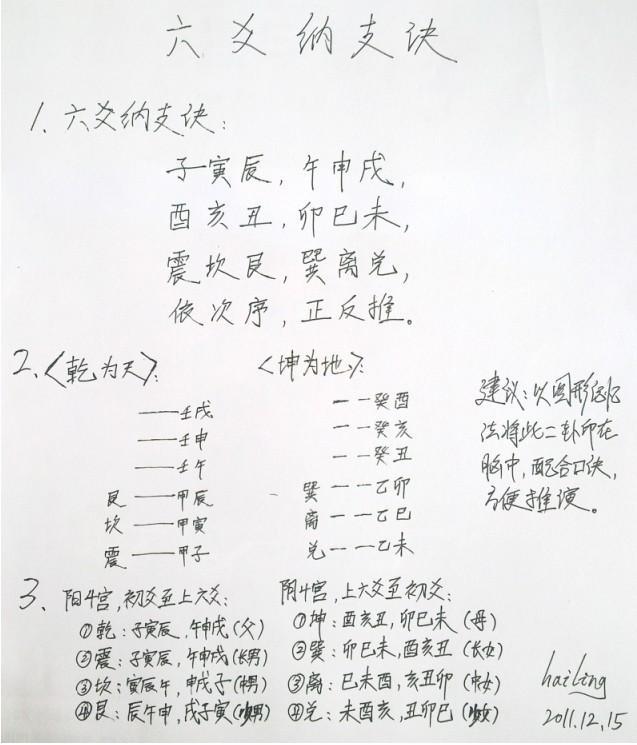 六爻纳支诀
1、六爻纳支诀：
子寅辰，午申戌，
酉亥丑，卯巳未，
震坎艮，巽离兑，
依次序，正反推。
2、〈乾为天〉：
壬戌
壬申
壬午
艮 甲辰
坎 甲寅
震 甲子
〈坤为地〉：
癸酉
癸亥
癸丑
巽 乙卯
离 乙巳
兑 乙未
建议：以图形记忆
法将此二卦印在
脑中，配合口诀，
方便推演。
3、阳4宫，初爻至上六爻：
①乾：子寅辰，午申戌（父）
②震：子寅辰，午申戌（长男）
③坎：寅辰午，申戌子（中男）
④艮：辰午申，戌子寅（少男）
阴4宫，上六爻至初爻：
①坤：酉亥丑，卯巳未（母）
②巽：卯巳未，酉亥丑（长女）
③离：巳未酉，亥丑卯（中女）
④兑：未酉亥，丑卯巳（少女）
hailing
2011.12.15